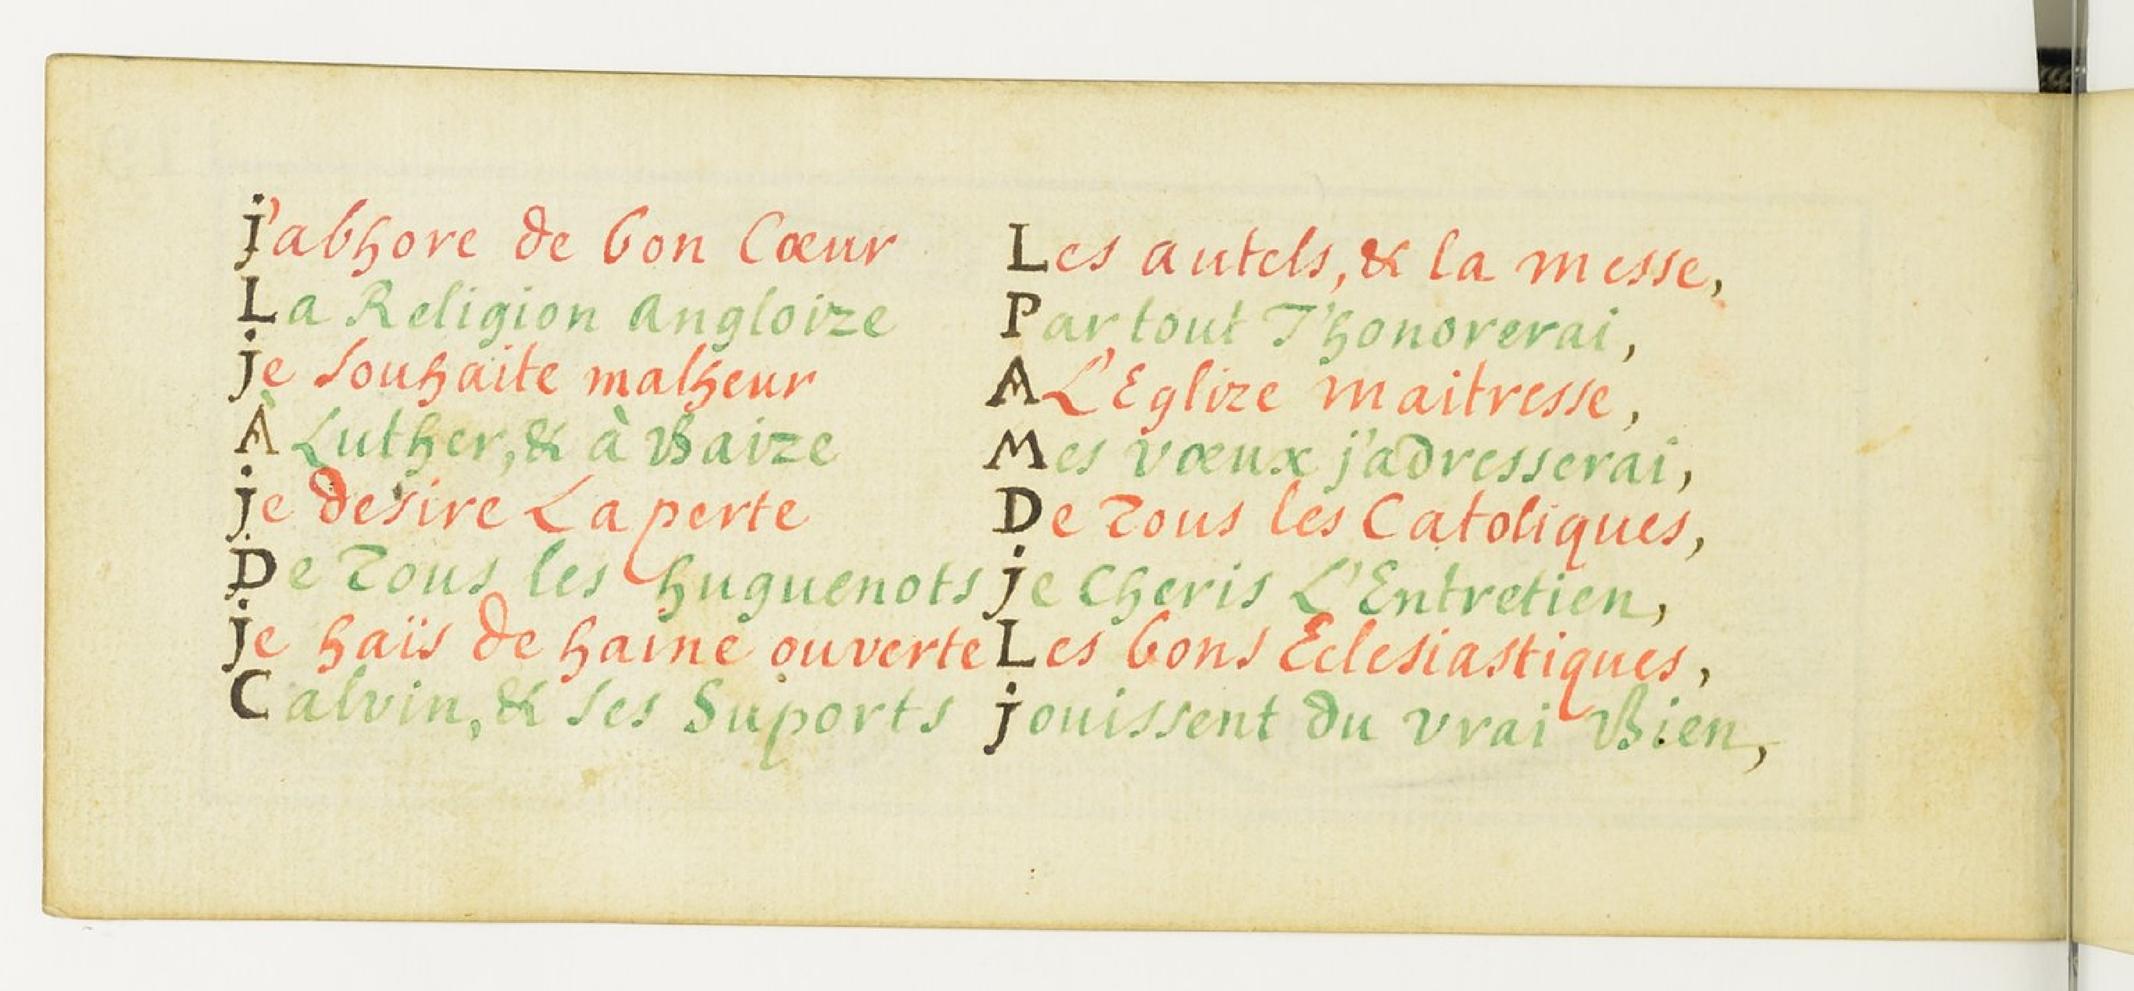 j'abhore de bon Cœur
La Religion Angloize
je souhaite malheur
À Luther, & à Baize
je desire La perte
De Tous les huguenots
je haïs de haine ouverte
Calvin, & ses Suports
Les autels, & la messe,
Par tout J'honorerai,
A L'Eglize maitresse,
Mes vœux j'adresserai,
De Tous les Catoliques,
je Cheris L'Entretien,
Les bons Eclesiastiques,
jouissent du vrai Bien,